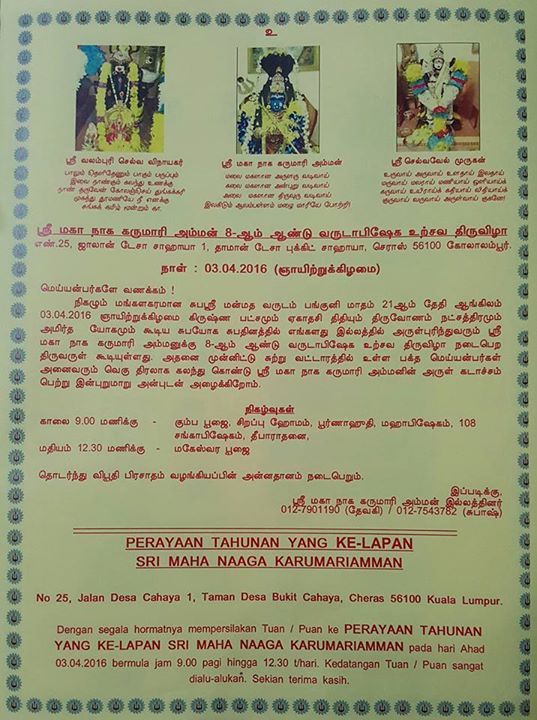 உ
ஸ்ரீ வலம்புரி செல்வ விநாயகர்
பாலும் தெளிதேனும் பாகும் பருப்பும்
இவை நான்கும் கலந்து உனக்கு
நான் தருவேன் கோலஞ்செய் துங்கக்கரி
முகத்து தூமணியே நீ எனக்கு
சங்கக் தமிழ் மூன்றும் தா.
ஸ்ரீ மகா நாக கருமாரி அம்மன்
ஸ்ரீ செல்வவேல் முருகன்
உருவாய் அருவாய் உளதாய் இலதாய்
மருவாய் மலராய் மணியாய் ஒளியாய்க்
கருவாய் உயிராய்க் கதியாய் விதியாய்க்
குருவாய் வருவாய் அருள்வாய் குகனே!
ஸ்ரீ மகா நாக கருமாரி அம்மன் 8-ஆம் ஆண்டு வருடாபிஷேக உற்சவ திருவிழா
என்.25, ஜாலான் டேசா சாஹாயா 1, தாமான் டேசா புக்கிட் சாஹாயா, செராஸ் 56100 கோலாலம்பூர்.
நாள் : 03.04.2016 (ஞாயிற்றுக்கிழமை)
மெய்யன்பர்களே வணக்கம் !
நிகழும் மங்களகரமான சுபஸ்ரீ மன்மத வருடம் பங்குனி மாதம் 21ஆம் தேதி ஆங்கிலம்
03.04.2016 ஞாயிற்றுக்கிழமை கிருஷ்ண பட்சமும் ஏகாதசி திதியும் திருவோணம் நட்சத்திரமும்
அமிர்த யோகமும் கூடிய சுபயோக சுபதினத்தில் எங்களது இல்லத்தில் அருள்புரிந்துவரும் ஸ்ரீ
மகா நாக கருமாரி அம்மனுக்கு 8-ஆம் ஆண்டு வருடாபிஷேக உற்சவ திருவிழா நடைபெற
திருவருள் கூடியுள்ளது. அதனை முன்னிட்டு சுற்று வட்டாரத்தில் உள்ள பக்த மெய்யன்பர்கள்
அனைவரும் வெகு திரலாக கலந்து கொண்டு ஸ்ரீ மகா நாக கருமாரி அம்மனின் அருள் கடாச்சம்
பெற்று இன்புறுமாறு அன்புடன் அழைக்கிறோம்.
நிகழ்வுகள்
காலை 9.00 மணிக்கு - கும்ப பூஜை, சிறப்பு ஹோமம், பூர்ணாஹுதி, மஹாபிஷேகம், 108
சங்காபிஷேகம், தீபாராதனை,
மதியம் 12.30 மணிக்கு - மகேஸ்வர பூஜை
தொடர்ந்து விபூதி பிரசாதம் வழங்கியப்பின் அன்னதானம் நடைபெறும்.
இப்படிக்கு,
ஸ்ரீ மகா நாக கருமாரி அம்மன் இல்லத்தினர்
012-7901190 (தேவகி) / 012-7543782 (சுபாஷ்)
PERAYAAN TAHUNAN YANG KE-LAPAN
SRI MAHA NAAGA KARUMARIAMMAN
No 25, Jalan Desa Cahaya 1, Taman Desa Bukit Cahaya, Cheras 56100 Kuala Lumpur.
Dengan segala hormatnya mempersilakan Tuan / Puan ke PERAYAAN TAHUNAN
YANG KE-LAPAN SRI MAHA NAAGA KARUMARIAMMAN pada hari Ahad
03.04.2016 bermula jam 9.00 pagi hingga 12.30 t/hari. Kedatangan Tuan / Puan sangat
dialu-alukan. Sekian terima kasih.